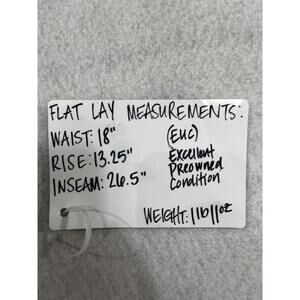 FLAT LAY MEASUREMENTS:
WAIST: 18"
RISE: 13.25"
INSEAM: 26.5"
(EUC)
Excellent
Preowned
Condition
WEIGHT: 1lb11oz